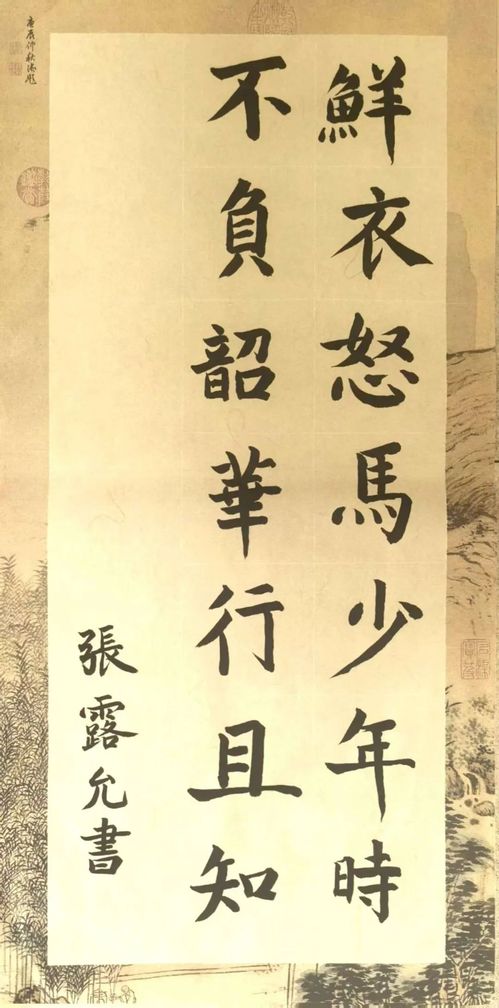 鮮衣怒馬少年時
不負韶華行且知
張露允書